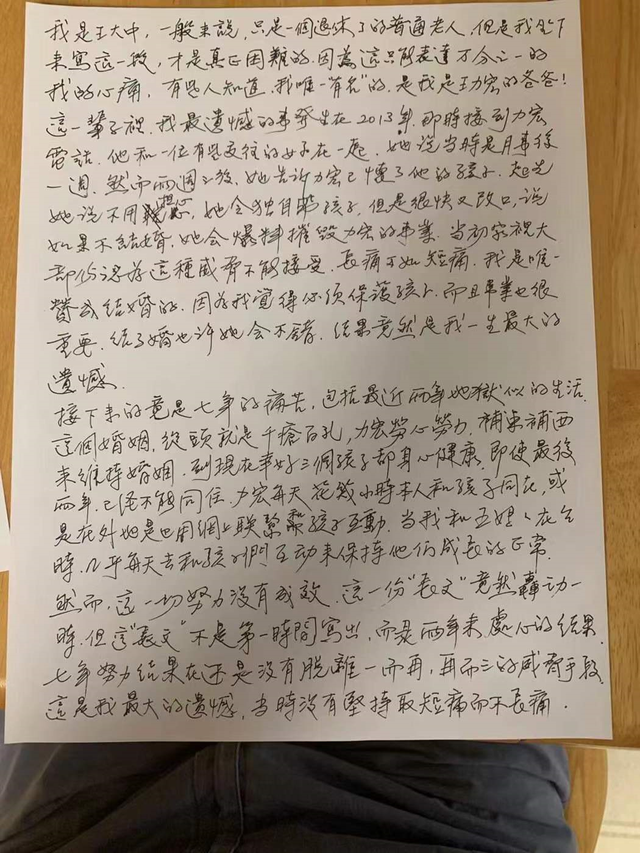 我是王大中，一般來說，只是一個退休了的普通老人，但是我坐下
來寫這一段，才是真正困難的，因為這只能表達万分之一的
我的心痛，有些人知道，我唯一"有名"的，是我是王力宏的爸爸！
這一輩子裡，我最遺憾的事發生在2013年，那時接到力宏
電話，他和一位有些交往的女子在一起，她說當時是月事後
一週，然而兩週之後，她告訴力宏已懷了他的孩子，起先
她說不用擔心，她会独自養孩子，但是很快又改口，說
如果不结婚，她会爆料摧毀力宏的事業，當初家裡大
部份認為這種威脅不能接受，長痛不如短痛，我是唯一
贊成结婚的，因為我覺得必須保護孩子，而且事業也很
重要，结了婚也许她会不錯，结果竟然是我一生最大的
遺憾．
接下來的竟是七年的痛苦，包括最近兩年地獄似的生活，
這個婚姻，從頭就是千瘡百孔，力宏勞心勞力，補東補西
來維持婚姻，到現在幸好三個孩子都身心健康，即使最後
兩年，已经不能同住，力宏每天花幾小時本人和孩子同在，或
是在外地是也用網上联繫和孩子互動，當我和王媽媽在台
時，几乎每天去和孩子們互动來保持他们成長的正常．
然而，這一切努力没有成效，這一份"長文"竟然轟动一
時，但這"長文"不是第一時間寫出，而是兩年來，處心的结果，
七年努力结果在还是没有脱離一而再，再而三的威脅手段
這是我最大的遺憾，當時没有堅持取短痛而不長痛．